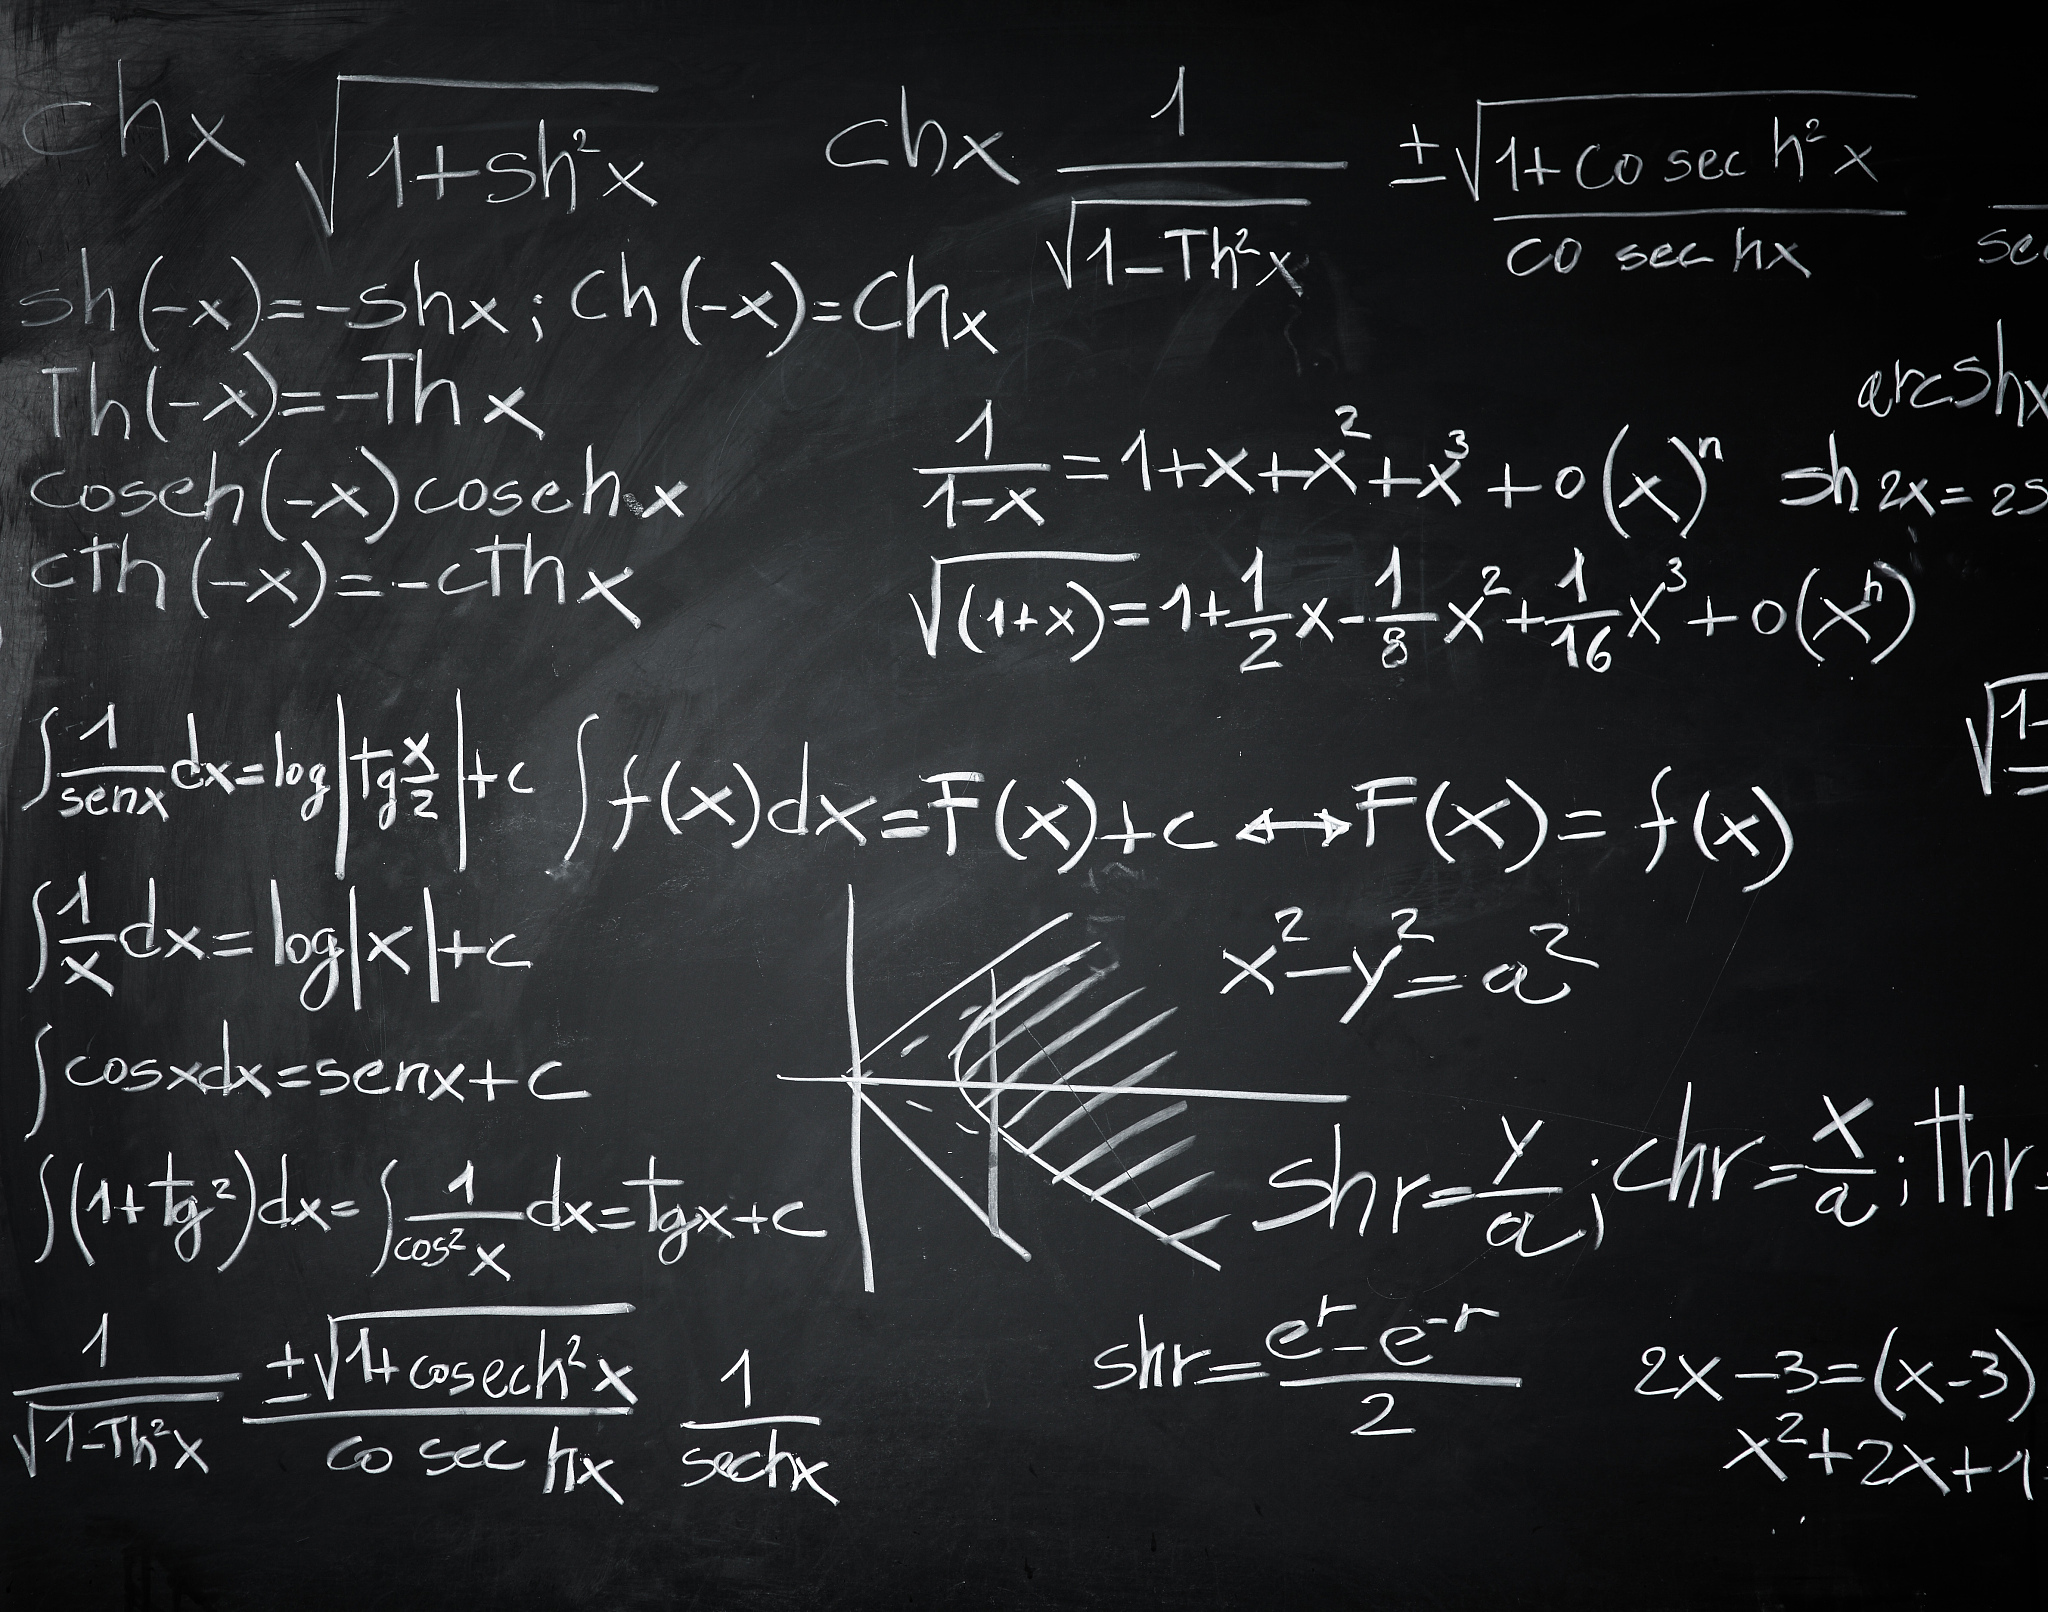 chx √1+sh²x chx 1/√1-Th²x ±√1+cosech²x/cosechx
sh(-x)=-shx; ch(-x)=chx
Th(-x)=-Thx
arcshx
cosech(-x)cosechx
1/1-x=1+x+x²+x³+o(x)ⁿ
sh2x=2s
cth(-x)=-cthx
√(1+x)=1+1/2x-1/8x²+1/16x³+o(xⁿ)
∫1/senx dx=log|tg x/2|+c
∫f(x)dx=F(x)+c↔F(x)=f(x)
√1-
∫1/x dx=log|x|+c
x²-y²=a²
∫cosxdx=senx+c
∫(1+tg²)dx=∫1/cos²x dx=tgx+c
shr=y/a; chr=x/a; thr=
1/√1-Th²x ±√1+cosech²x/cosechx 1/sechx
shr=eʳ-e⁻ʳ/2
2x-3=(x-3)
x²+2x+1=